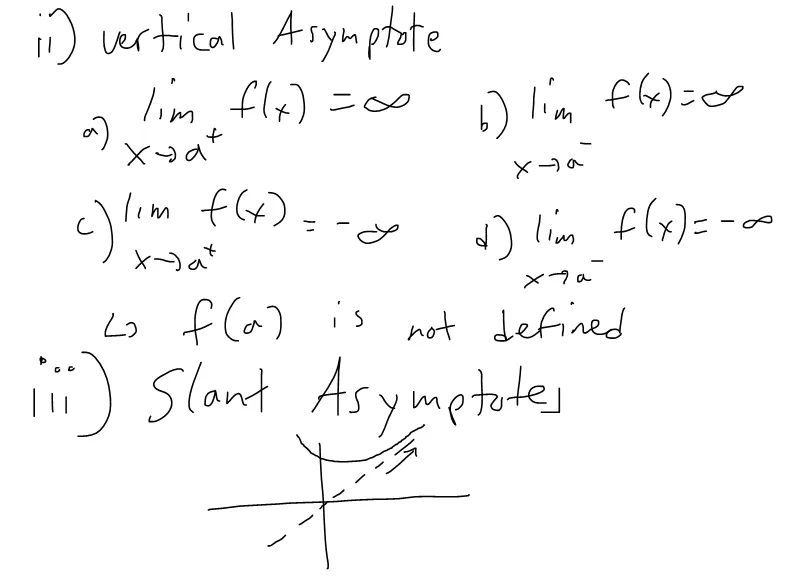 ii) vertical Asymptote
a) lim x→a⁺ f(x) = ∞ b) lim x→a⁻ f(x) = ∞
c) lim x→a⁺ f(x) = -∞ d) lim x→a⁻ f(x) = -∞
↳ f(a) is not defined
iii) Slant Asymptote